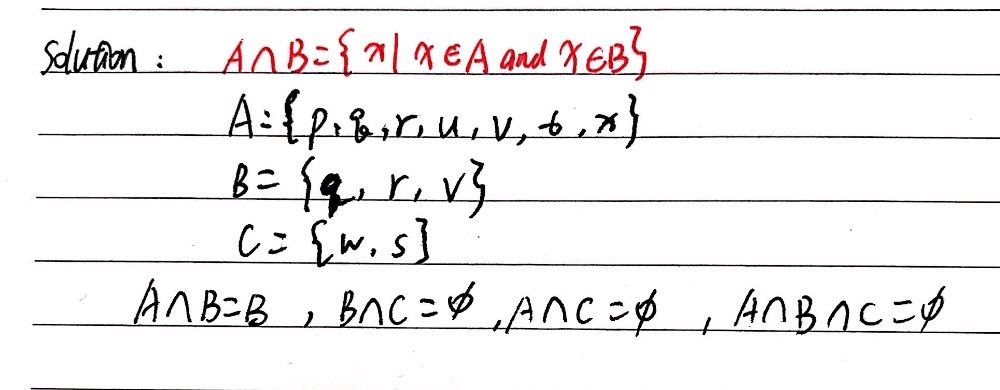 Solution : A∩B={x| x∈A and x∈B}
A={p,q,r,u,v,t,x}
B={q,r,v}
C={w,s}
A∩B=B , B∩C=∅ ,A∩C=∅ , A∩B∩C=∅